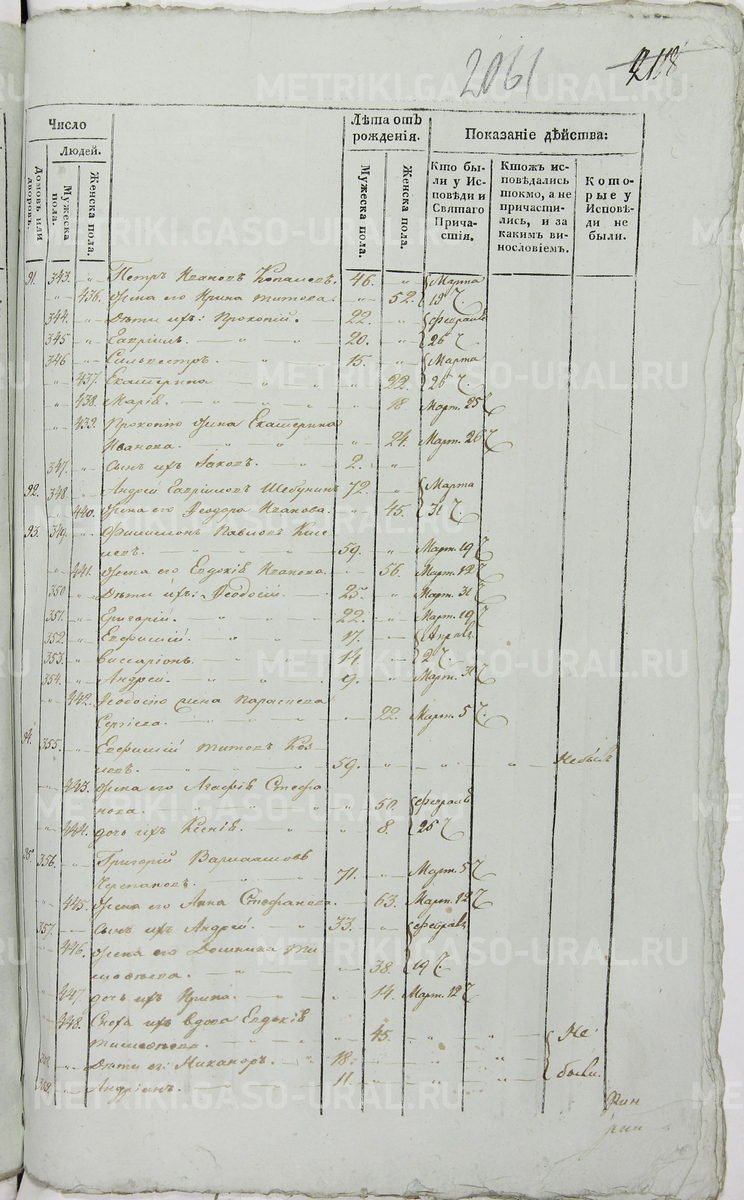 2061
218
Число
Людей.
Домовъ или дворовъ.
Мужеска пола.
Женска пола.
Лѣта отъ рожденія.
Мужеска пола.
Женска пола.
Показаніе дѣйства:
Кто бы-
ли у Ис-
повѣди и
Святаго
Прича-
стія.
Ктожъ ис-
повѣдались
токмо, а не
причасти-
лись, и за
какимъ ви-
нословіемъ.
Кото-
рые у
Исповѣ-
ди не
были.
91. 343. Петръ Ивановъ 46. Марта
436. Жена его Ирина Титова. 52. 19
344. Дѣти ихъ: Прокопій. 22. Февраля
345 Гавріилъ. 20. 26
346 Сильвестръ. 15. Марта
437. Екатерина 22. 26
438. Марія. 18 Март. 25
439. Прокопію жена Екатерина
Иванова. 24. Март. 26
347. Сынъ ихъ Іаковъ. 2.
92. 348. Андрей Гавріиловъ 72. Марта
440. Жена его Ѳеодора Иванова. 45. 31
93. 349. Филимонъ Павловъ
59. Март. 19
441. Жена его Евдокія Иванова. 56. Март. 12
350 Дѣти ихъ: Ѳеодосій. 25. Март. 31
351. Григорій. 22. Март. 19
352. Евфимій. 17. Апрѣля
353. Виссаріонъ. 14. 2
354. Андрей. 9. Март. 31
442. Ѳеодосію жена Параскева
Сергіева. 22. Март. 5
94. 355. Евфимій Титовъ Коз-
ловъ. 59. Небылъ
443. Жена его Агафія Стефа-
нова. 50. Февраля
444. дочь ихъ Ксенія. 8. 25
95. 356. Григорій Варлаамовъ
Черепановъ. 71. Март. 5
445. Жена его Анна Стефанова. 63. Март. 12
357. Сынъ ихъ Андрей. 33. Февраля
446. Жена его Домника Ти-
моѳеева. 38. 19
447. дочь ихъ Ирина. 14. Март. 12
448. Сноха ихъ вдова Евдокія
Тимоѳеева. 45. Не
Дѣти ея: Никаноръ. 18. были.
Андріанъ. 11.
METRIKI.GASO-URAL.RU